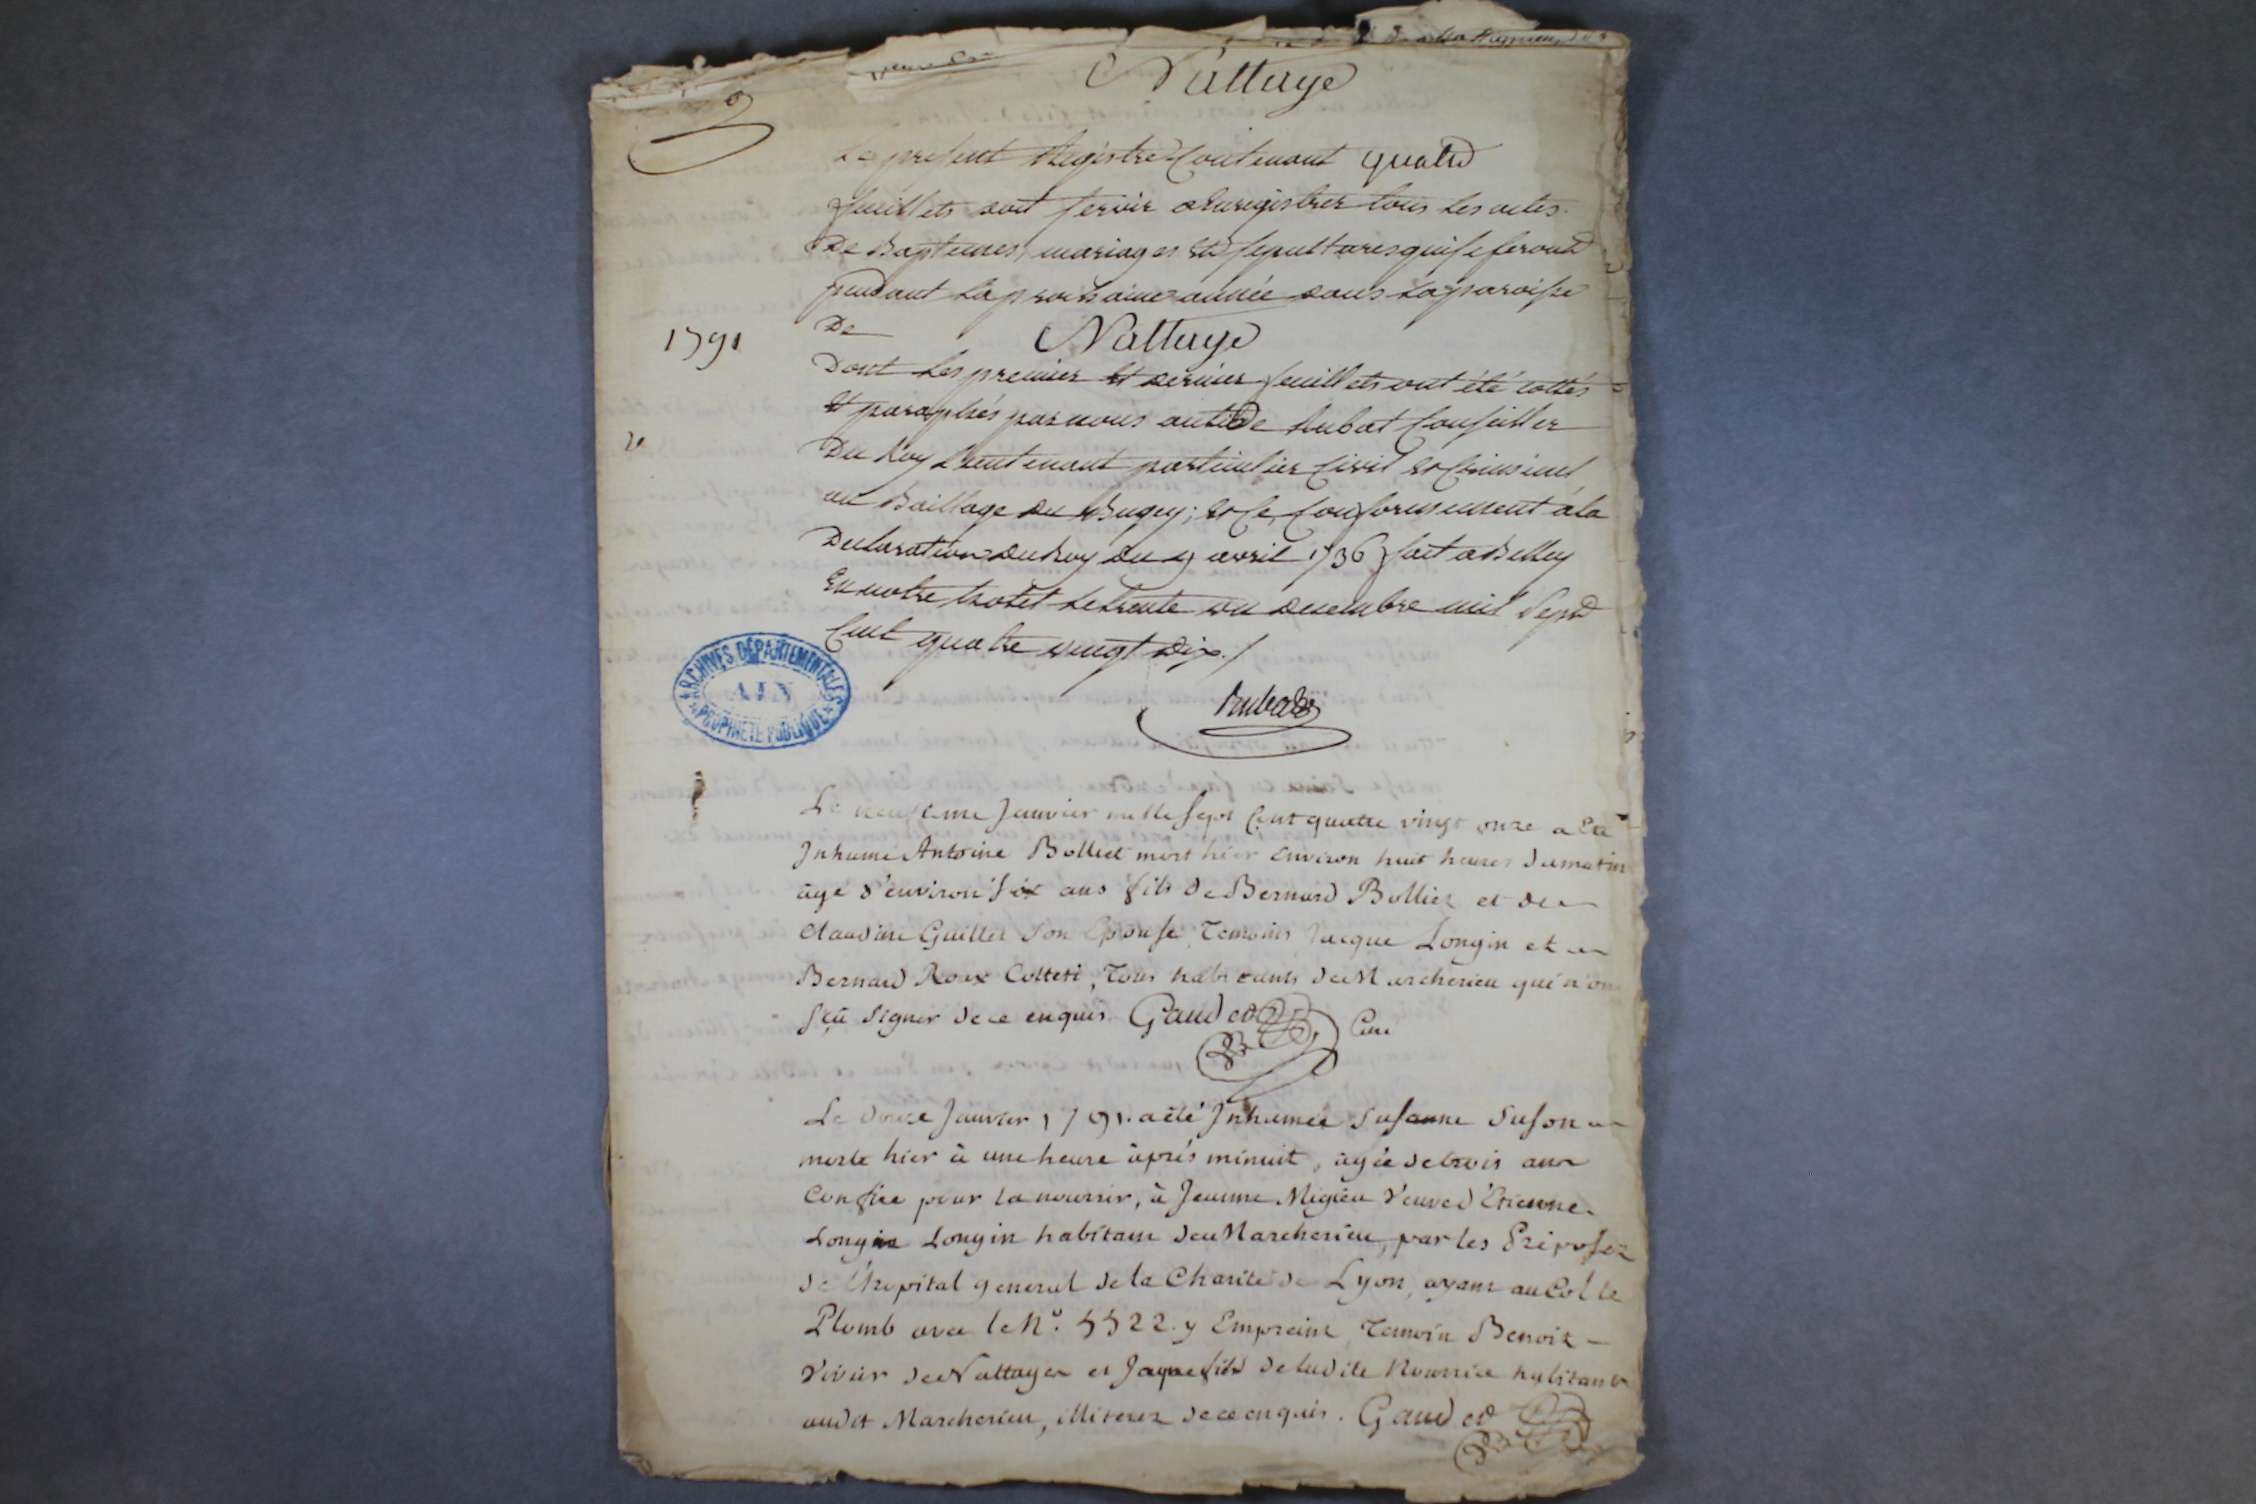 Nattage
Le present Registre Contenant quatre
feuillets doit servir a Enregistrer tous les actes
De Baptemes, mariages Et sepultures qui se feront
pendant la prochaine année dans la paroisse
De
1791
Nattage
Dont les premier Et dernier feuillets ont été cottés
Et paraphés par nous de Rubat Conseiller
Du Roy Lieutenant particulier Civil Et Criminel
au Bailliage du Bugey; Et Ce, Conformement à la
Declaration du Roy du 9 avril 1736 fait a Belley
En notre hotel le trente un decembre mil Sept
Cent quatre vingt Dix./
ARCHIVES DÉPARTEMENTALES
AIN
PROPRIÉTÉ PUBLIQUE
Rubat
Le neufieme Janvier mille sept Cent quatre vingt onze a Eté
Inhumé Antoine Bolliet mort hier environ huit heures du matin
âgé d'environ six ans fils de Bernard Bolliet et de
Claudine Guillet son Epouse, Temoins Jacque Longin et
Bernard Roux Colleti, Tous habitants de Marcherieu qui n'ont
sçû signer de ce enquis. Gaudet Curé
Le douze Janvier 1791. a été Inhumée Susanne Suson
morte hier à une heure après minuit, âgée de trois ans
Confiée pour la nourrir, à Jeanne Migieu Veuve d'Etienne
Longin Longin habitant de Marcherieu, par les Préposez
de l'hopital general de la Charité de Lyon, ayant au Col le
Plomb avec le N°. 5522 y Empreint Temoin Benoit
Vivier de Nattage et Jaque fils de ladite Nourrice habitant
audit Marcherieu, illiterez de ce enquis. Gaudet